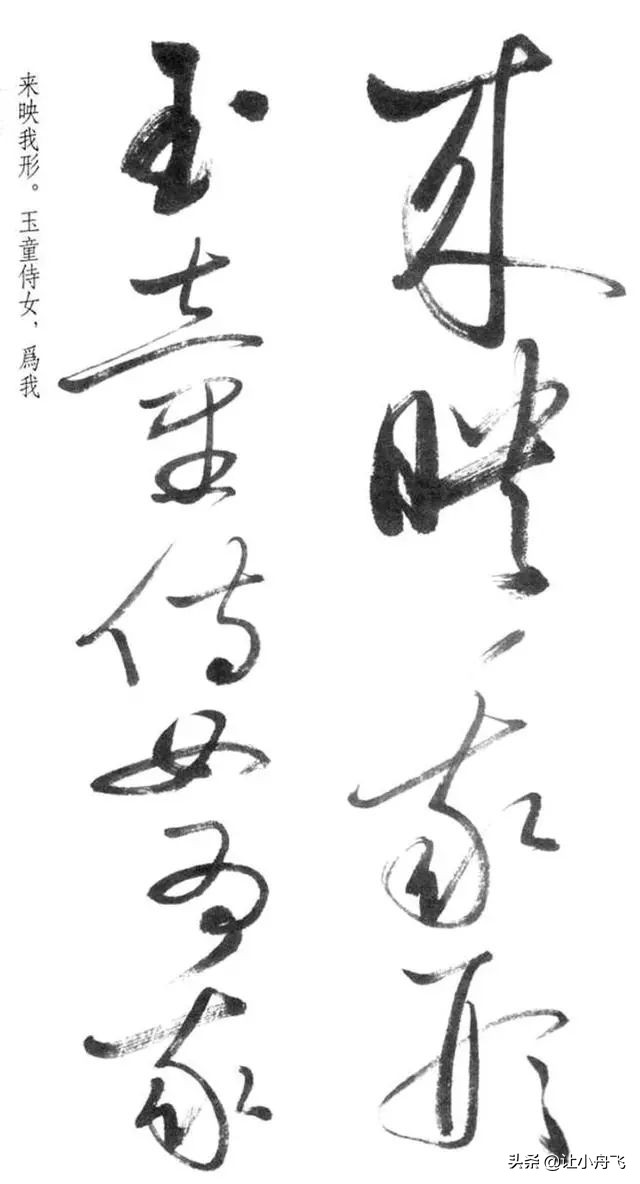 来映我形
玉童侍女爲我
来映我形。玉童侍女，爲我
头条 @让小舟飞